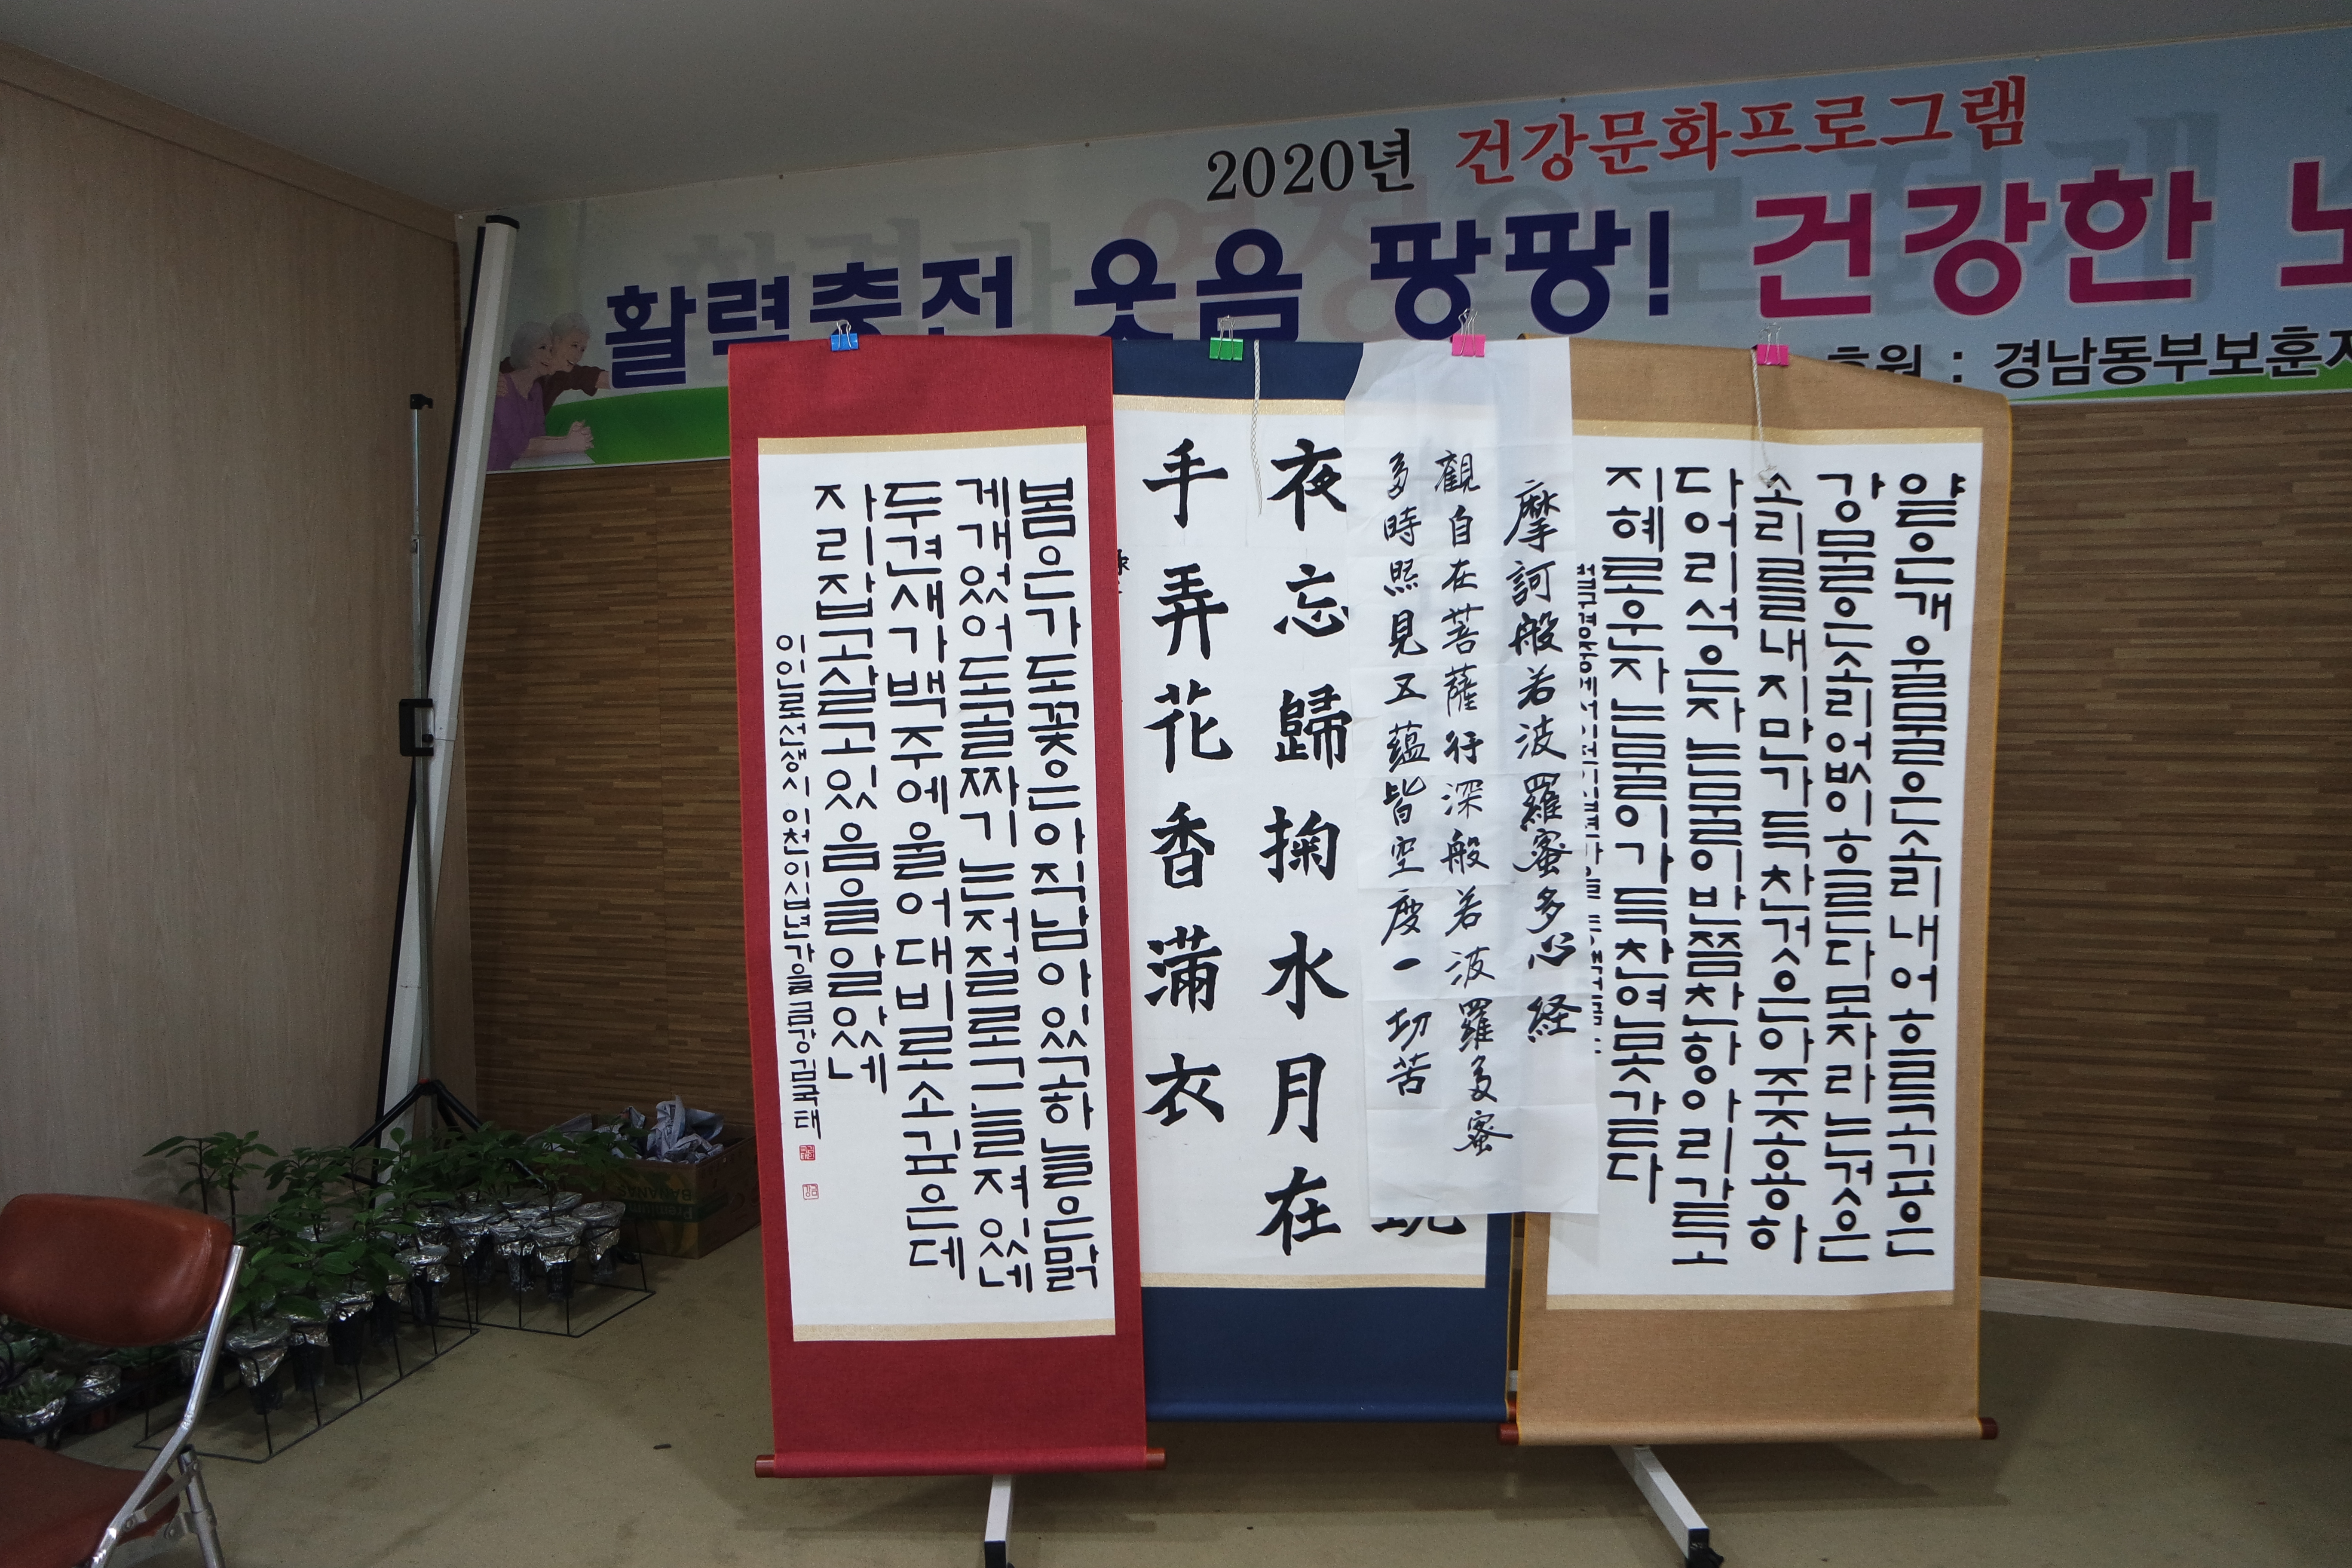 2020년 건강문화프로그램
활력충전 웃음 팡팡! 건강한
후원 : 경남동부보훈지
봄은가도꽃은아직남아있고하늘은맑
게개었어도골짜기는절로그늘져있네
두견새가백주에울어대비로소깊은데
자리잡고살고있음을알았네
이인로선생시 이천이십년가을 금강김국태
夜忘歸掬水月在
手弄花香滿衣
摩訶般若波羅蜜多心経
觀自在菩薩行深般若波羅多蜜
多時照見五蘊皆空度一切苦
얕은개울물은소리내어흐르고깊은
강물은소리없이흐른다모자라는것은
소리를내지만가득찬것은아주조용하
다어리석은자는물이반쯤찬항아리같고
지혜로운자는물이가득찬연못같다